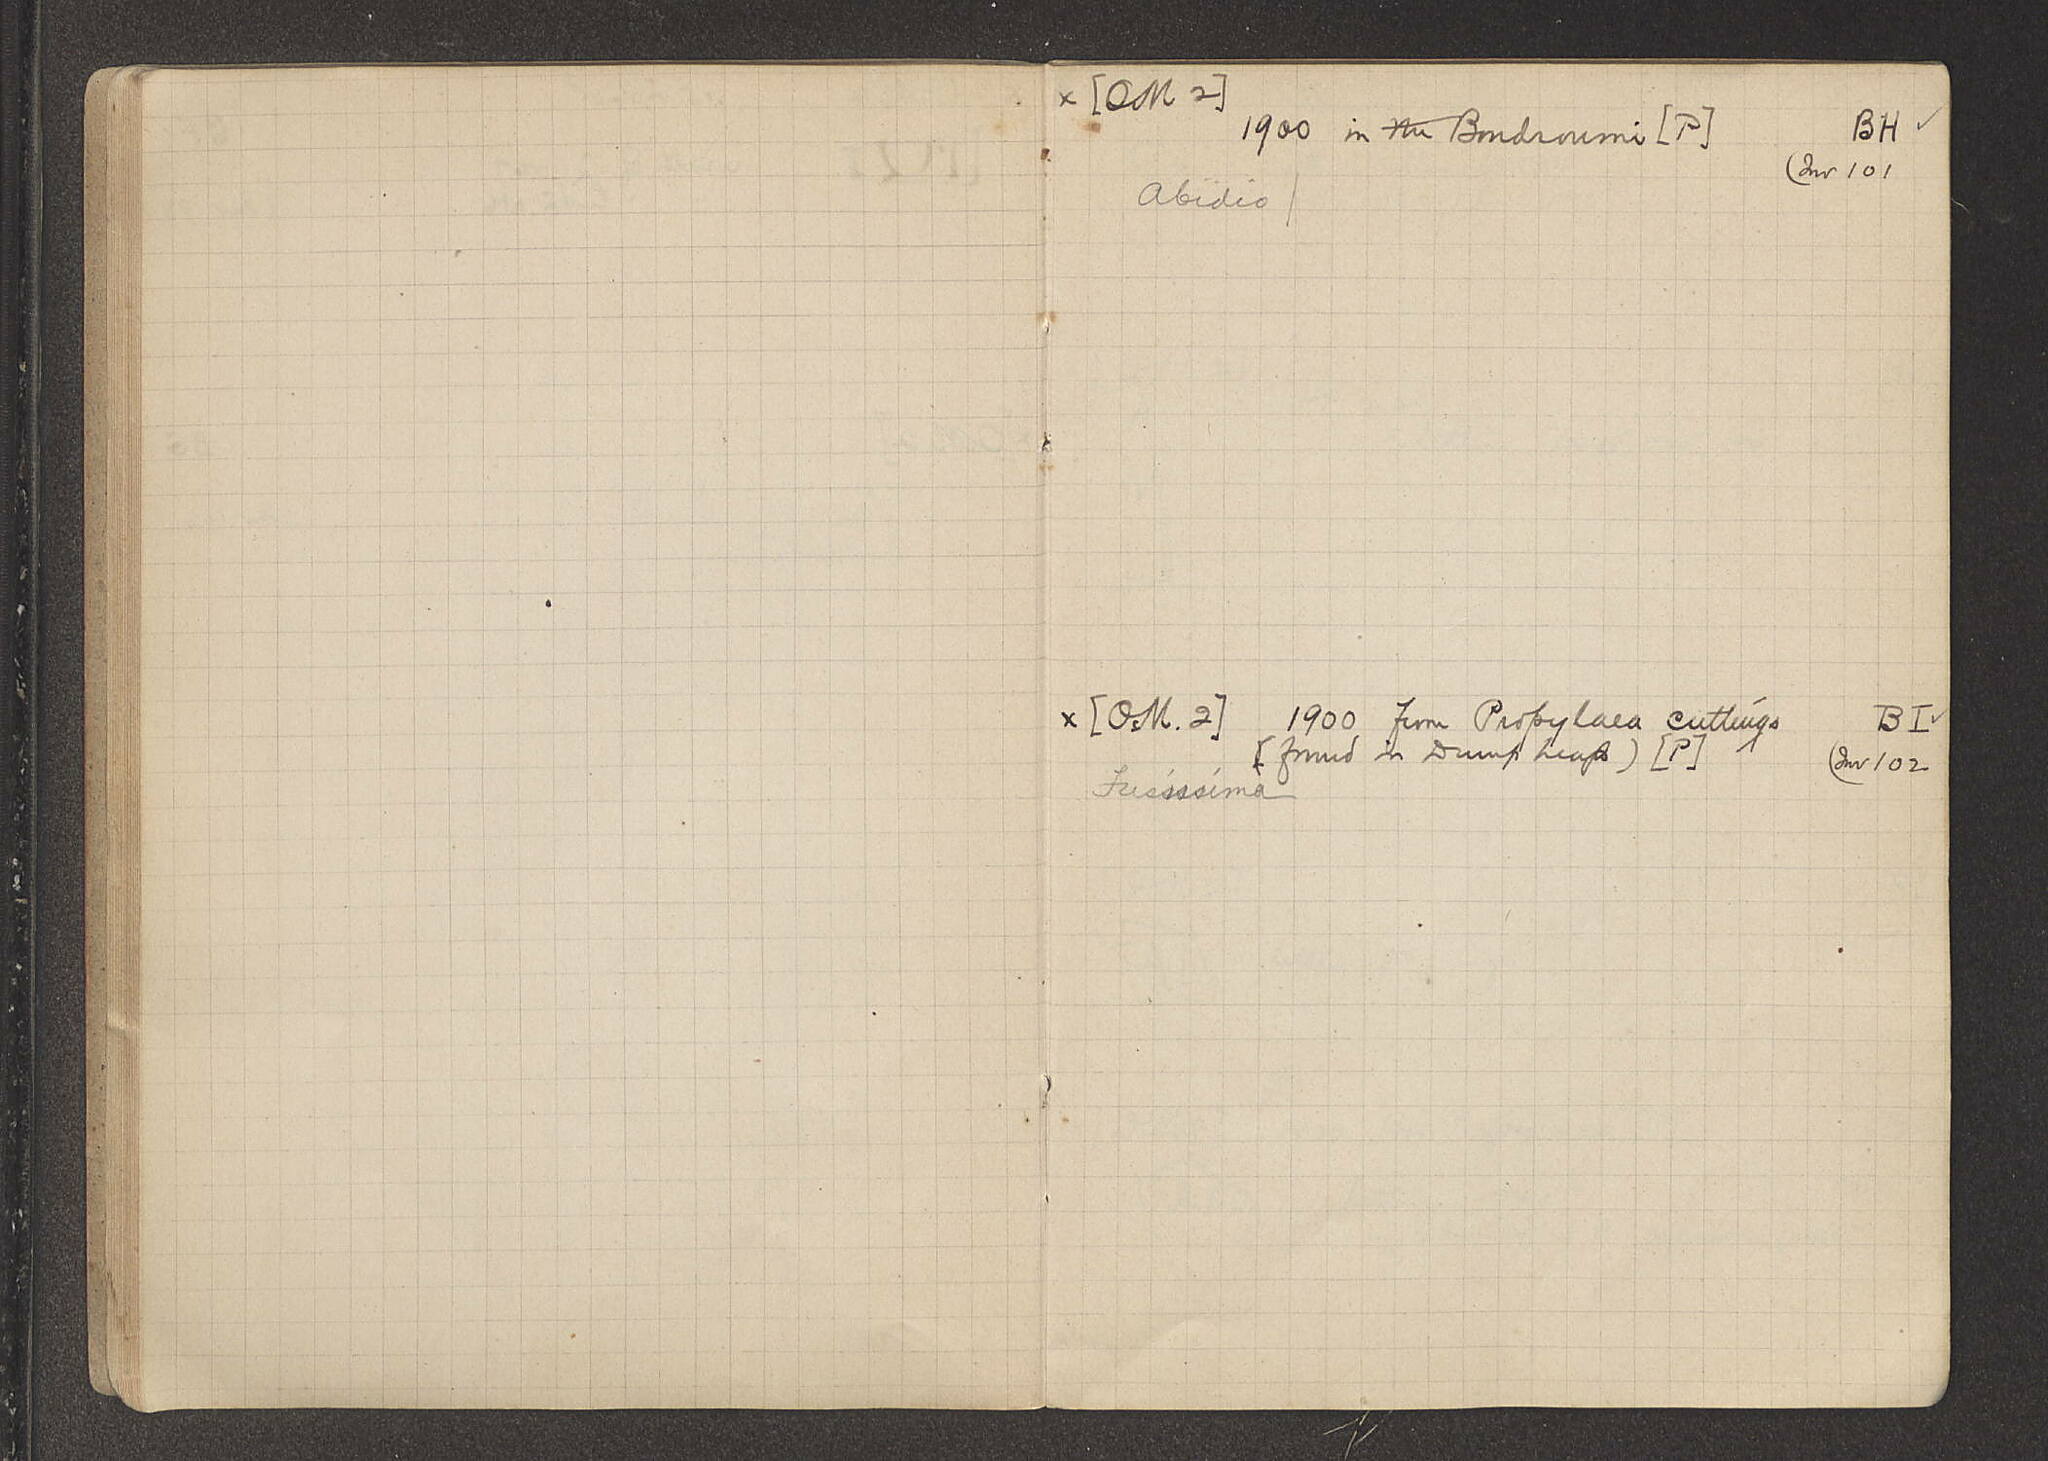 x [OM 2]
1900 in the Boudroumi [P] BH ✓
(Inv 101
Abidio |
x [OM. 2] 1900 from Propylaea cuttings BI ✓
(found in Dump heaps) [P] (Inv 102